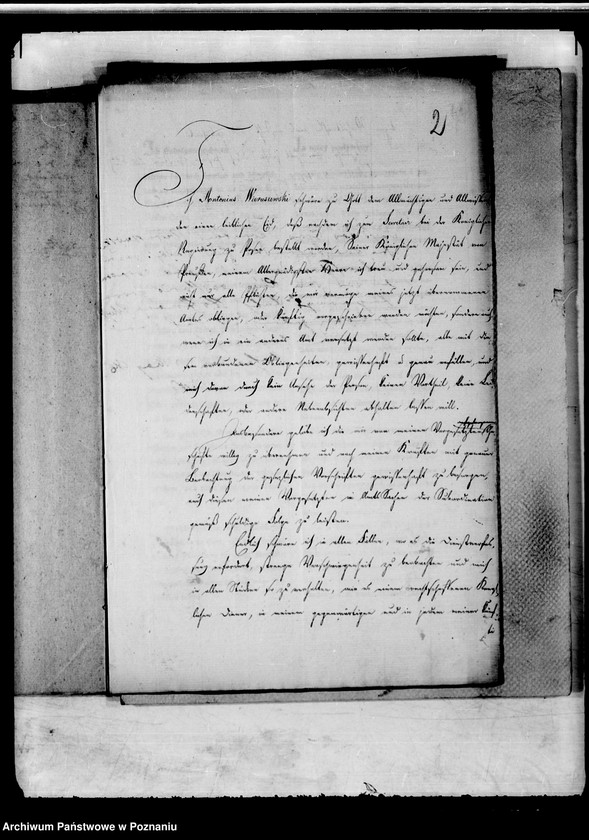 2
Ich Antonius Wierusiewski schwöre zu Gott dem Allmächtigen und Allwissen
den einen leiblichen Eid, daß nachdem ich zum Secretair bei der Königlichen
Regierung zu Posen bestellt worden, Seiner Königlichen Majestät von
Preußen, meinem Allergnädigsten Herrn ich treu und gehorsam sein, und
nicht nur alle Pflichten, die mir vermöge meines jetzt übernommenen
Amtes obliegen, oder künftig vorgeschrieben werden möchten, sondern auch
wenn ich in ein anderes Amt versetzt werden sollte, alle mit die
sen verbundenen Obliegenheiten, gewissenhaft und genau erfüllen, und
mich davon durch kein Ansehn der Person, keinen Vortheil, keine Lei
denschaften, oder andere Nebenabsichten abhalten lassen will.
Insbesondere gelobe ich die mir von meinen Vorgesetzten
schäfte willig zu übernehmen und nach meinen Kräften mit genauer
Beobachtung der gesetzlichen Vorschriften gewissenhaft zu besorgen,
auch diesen meinen Vorgesetzten in Amts Sachen der Subordination
gemäß schuldige Folge zu leisten.
Endlich schwöre ich in allen Fällen, wo es die Dienstverfas
sung erfordert, strenge Verschwiegenheit zu beobachten und mich
in allen Stücken so zu verhalten, wie es einem rechtschaffenen König
lichen Diener, in meinem gegenwärtigen und in jedem meiner künf
ti
Archiwum Państwowe w Poznaniu